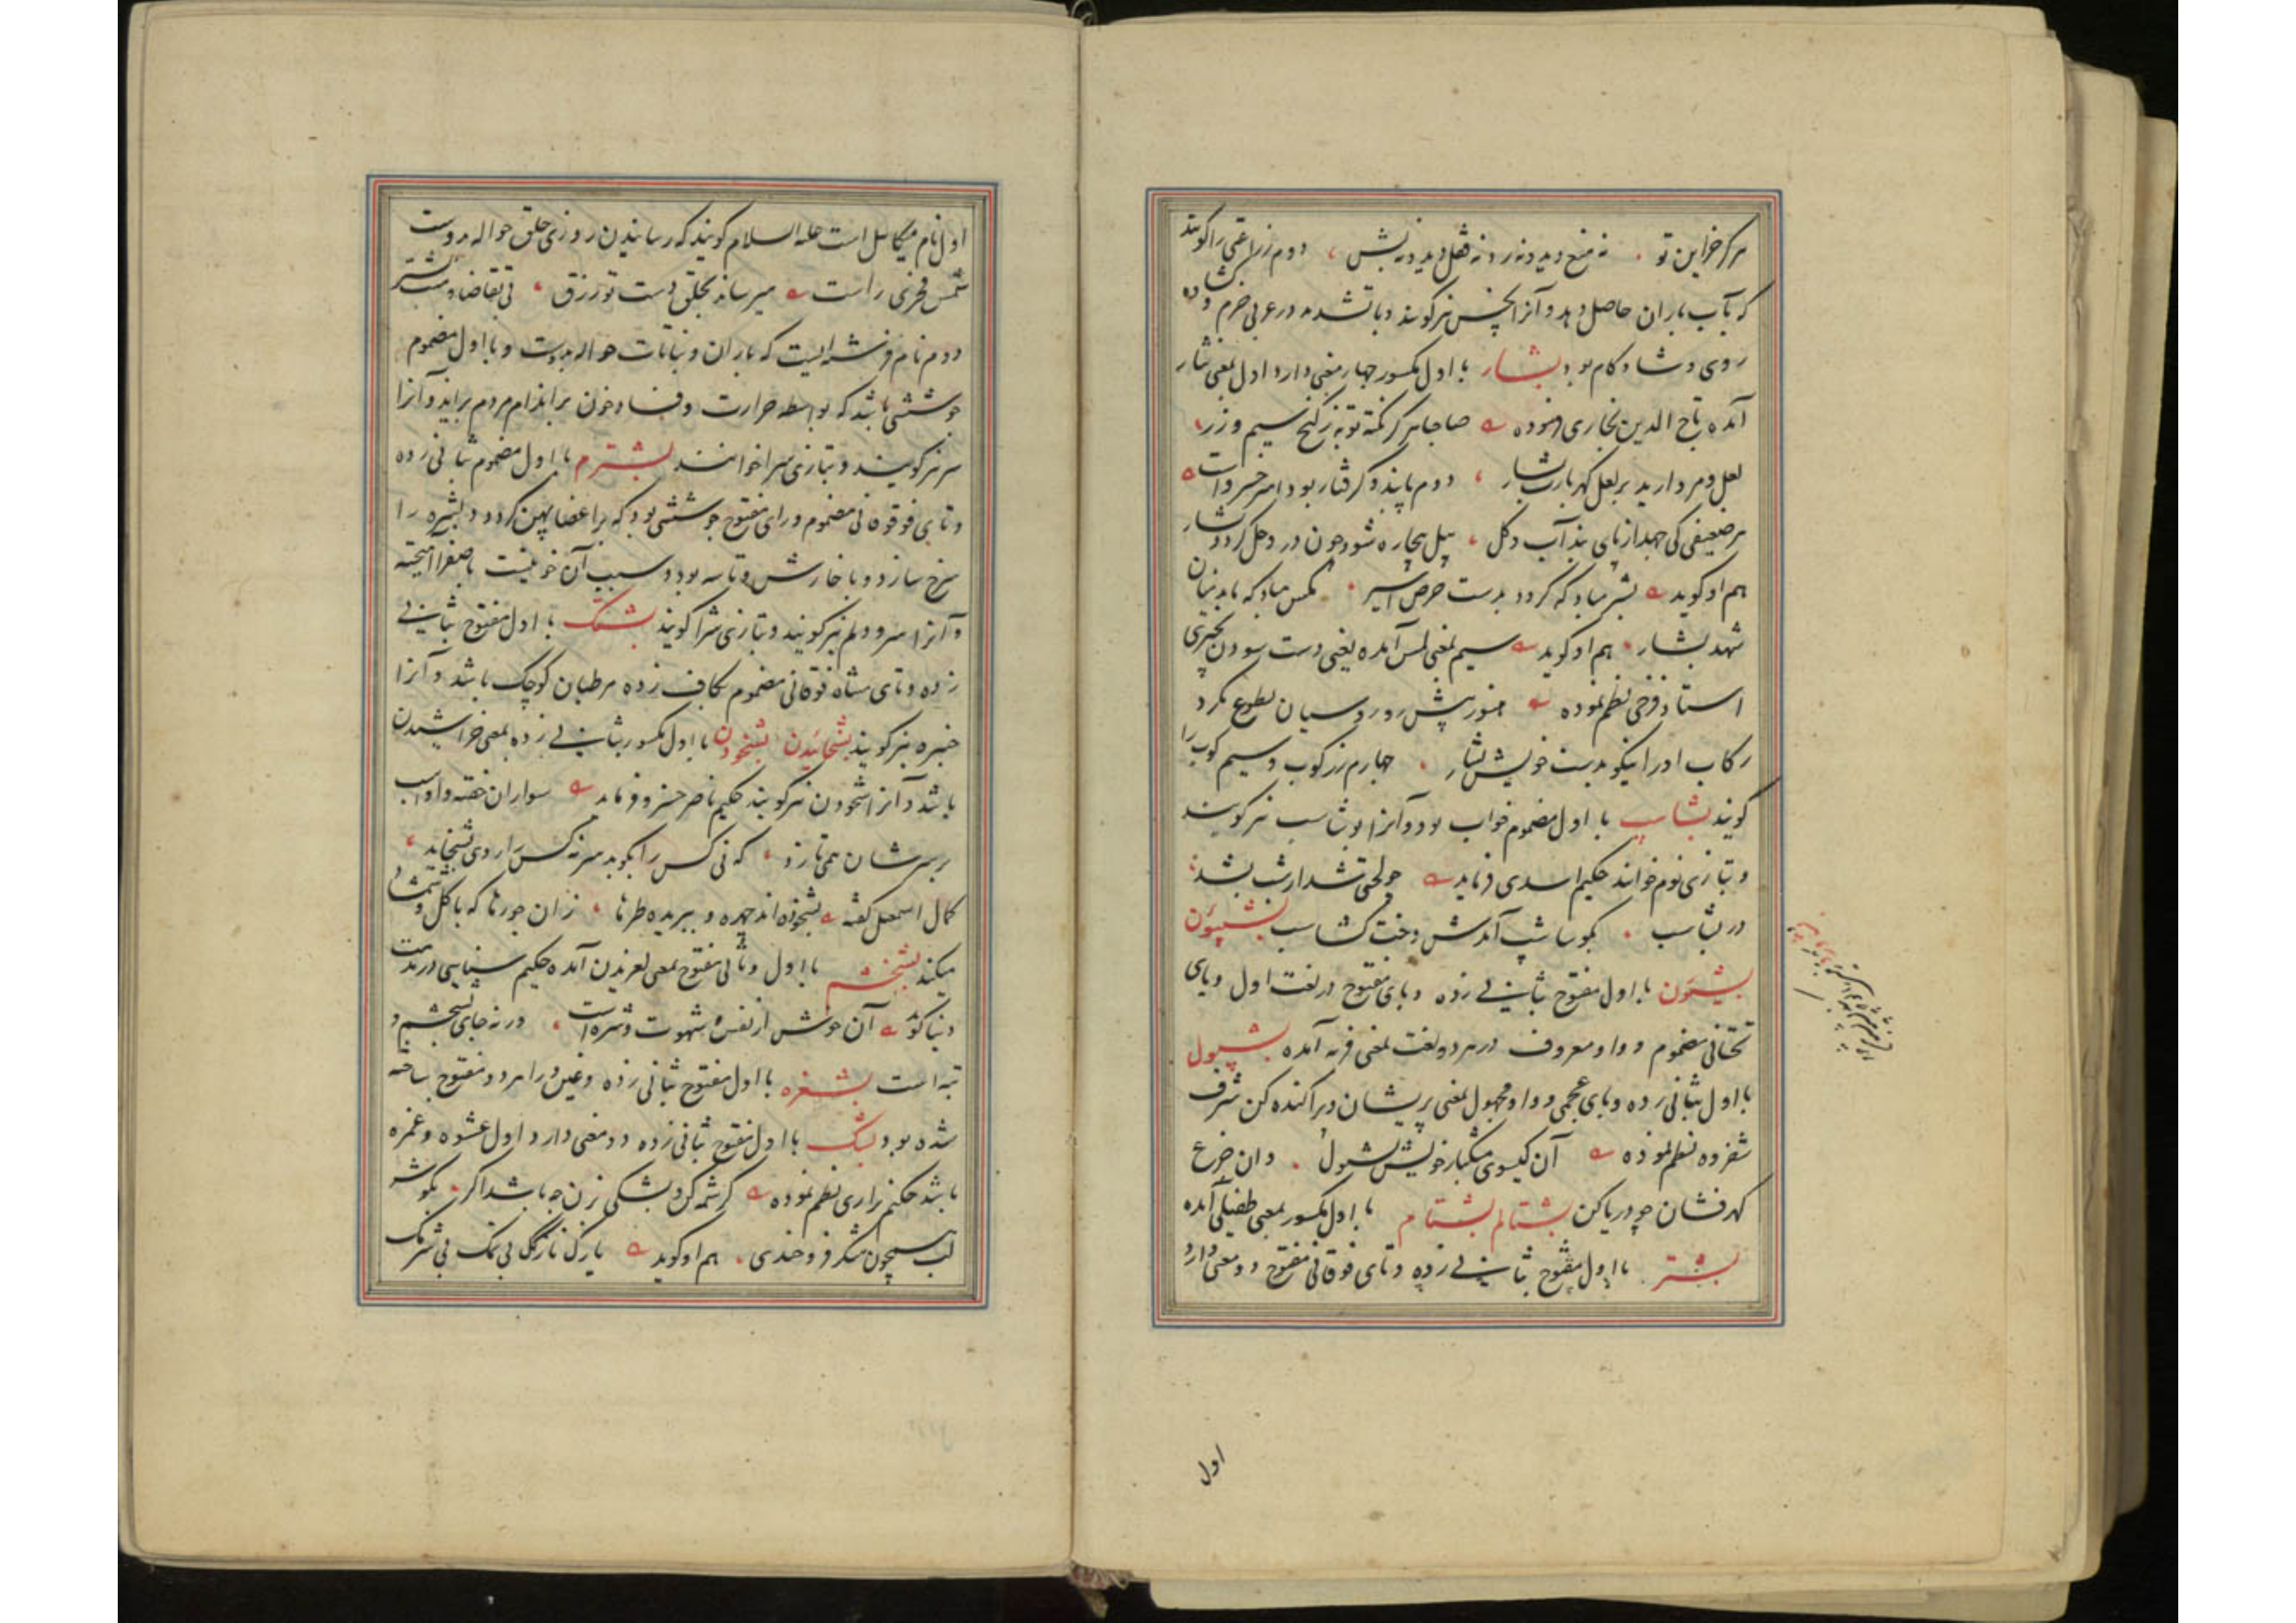 هر کز خزاین تو نه منع دید و نه رد نه قفل دید و نه بش دوم زراعتی را گویند
که بآب باران حاصل دهد و آنرا بخس نیز گویند و با تشدید در عربی خرم و کشاده
روی و شادکام بود بشار با اول مکسور چهار معنی دارد اول بمعنی نثار
آمده تاج الدین بخاری فرموده صاحبا بر کر نکته تو به ز کنج سیم و زر
لعل و مروارید بر لعل کهربارت بشار دوم پابند و گرفتار بود امیر خسرو راست
هر ضعیفی کی جهد از پای بند آب و کل پیل بیچاره شود چون در وحل کردد بشار
هم او گوید بشر مباد که کردد بدست حرص اسیر مکس مباد که ماند میان
شهد بشار هم او گوید سیم بمعنی لمس آمده یعنی دست سودن بچیزی
استاد فرخی نظم نموده هنوز پیش رو روسیان بطوع نکرد
رکاب او را نیکو بدست خویش بشار چهارم زرکوب و سیم کوب را
گویند بشاسب با اول مضموم خواب بود و آنرا بوشاسب نیز گویند
و بتازی نوم خوانند حکیم اسدی فرماید چو لختی شد از شب بشد
در بشاسب کبوشاسب آمدش دخت کشاسب بشپون
بشیون با اول مفتوح بثانی زده و بای مفتوح در لغت اول و یای
تحتانی مضموم و واو معروف در هر دو لغت بمعنی فربه آمده بشپول
با اول بثانی زده و بای عجمی و واو مجهول بمعنی پریشان و پراکنده کن شرف
شفروه نظم نموده آن کیسوی مشکبار خویش بشپول وان جزع
کهرفشان چو دریا کن بشتالم بشتام با اول مکسور بمعنی طفیلی آمده
بشتر با اول مفتوح بثانی زده و تای فوقانی مفتوح دو معنی دارد
اول
اول نام میکائیل است علیه السلام گویند که رسانیدن روزی خلق حواله بدوست
شمس فخری راست میرساند بخلق دست تو رزق بی تقاضا و منت بشتر
دوم نام فرشته‌ایست که باران و نباتات حواله بدوست و با اول مضموم
جوششی باشد که بواسطه حرارت و فساد خون بر اندام مردم براید و آنرا
سر نیز گویند و بتازی سرا خوانند بشترم با اول مضموم بثانی زده
و تای فوقانی مضموم و رای مفتوح جوششی بود که بر اعضا پهن کردد و بشره را
سرخ سازد و با خارش و تاسه بود و سبب آن خونیست با صفرا آمیخته
و آنرا سرودلم نیز گویند و بتازی شرا گویند بشتک با اول مفتوح بثانی
زده و تای مثناه فوقانی مضموم بکاف زده مرطبان کوچک باشد و آنرا
خنبره نیز گویند بشخائیدن بشخودن با اول مکسور بثانی زده بمعنی خراشیدن
باشد و آنرا شخودن نیز گویند حکیم ناصر خسرو فرماید سواران خفته و او اسب
بر سرشان همی تازد که نی کس را بکوبد سر نه کس را روی بشخاید
کمال اسمعیل گفته بشخوده اند چهره و ببریده طره‌ها زان جورها که با گل و شمشاد
میکند بشخشم با اول و ثانی مفتوح بمعنی لغزیدن آمده حکیم سنایی در مذمت
دنیا گوید آن خوش از نفس و شهوت و شره است ورنه جای بشخشم و
تبه است بشغره با اول مفتوح بثانی زده و غین و را هر دو مفتوح ساخته
شده بود بشک با اول مفتوح بثانی زده دو معنی دارد اول عشوه و غمزه
باشد حکیم نزاری نظم نموده کرشمه کن و بشکی بزن چه باشد اگر بگوشه
لب همچون شکر فرو خندی هم او گوید